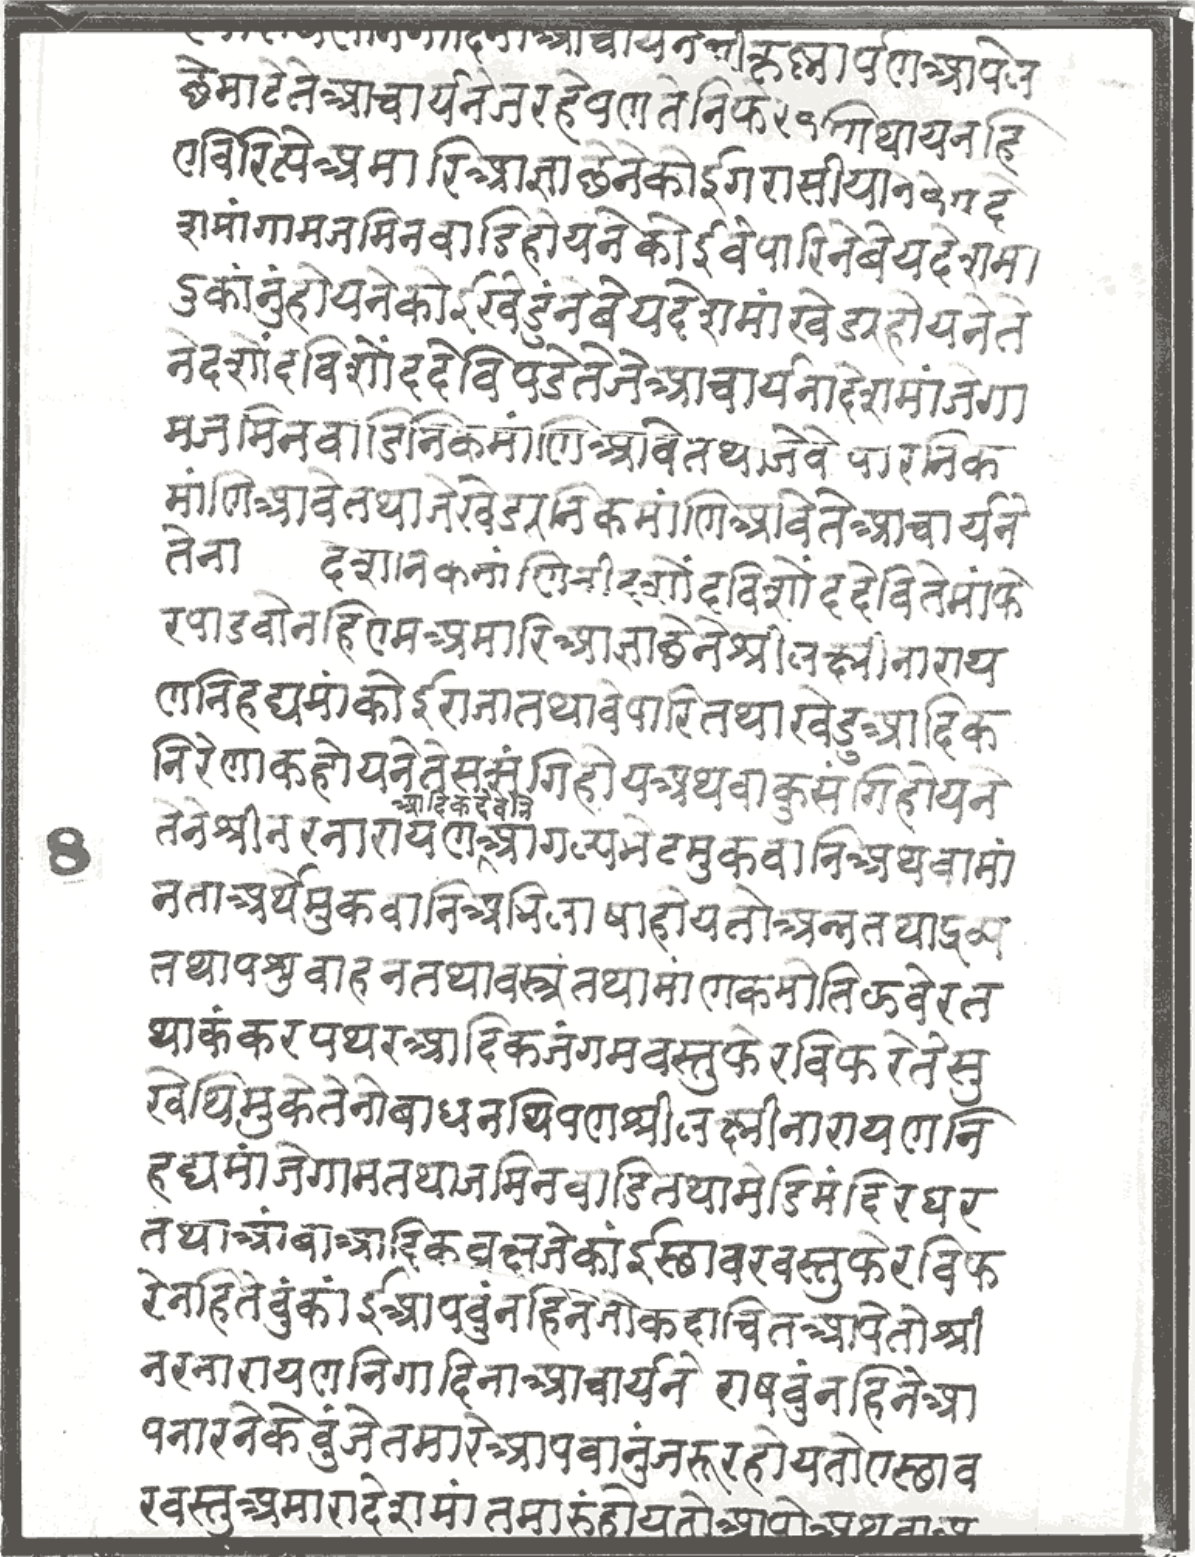 आचार्यने श्रीकृष्णार्पण आपेल
छेमाटेतेआचार्यनेजरहेपणतेनिफेर९णिथायनहि
एविरित्येअमारिआज्ञाछेनेकोईगरासीयाने
शमांगामजमिनवाडिहोयनेकोईवेपारिनेबेयदेशमा
डुकांनुंहोयनेकोईखेडुंनेबेयदेशमांखेडयहोयनेते
नेदशोंदविशोंददेविपडेतेजेआचार्यनादेशमांजेगा
मजमिनवाडिनिकमांणिआवेतथाजेवेपारनिक
मांणिआवेतथाजेखेडयनिकमांणिआवेतेआचार्यने
तेना देशनिकमांणिनीदशोंदविशोंददेवितेमांफे
रपाडवोनहिएमअमारिआज्ञाछेनेश्रीलक्ष्मीनाराय
णनिहद्यमांकोईराजातथावेपारितथाखेडुआदिक
निरेणाकहोयनेतेसत्संगिहोयअथवाकुसंगिहोयने
आदिकदेवनि
तेनेश्रीनरनारायणआगळ्यभेटमुकवानिअथवामां
नताअर्थेमुकवानिअभिलाषाहोयतोअन्नतथाद्रव्य
तथापशुवाहनतथावस्त्रंतथामांणकमोतिझवेरत
थाकंकरपथरआदिकजंगमवस्तुफेरविफरेतेसु
खेथिमुकेतेनोबाधनथिपणश्रीलक्ष्मीनारायणनि
हद्यमांजेगामतथाजमिनवाडितथामेडिमंदिरघर
तथाआंबाआदिकवृक्षजेकांईस्छावरवस्तुफेरविफ
रेनहितेवुंकांईआपवुंनहिनेजोकदाचितआपेतोश्री
नरनारायणनिगादिनाआचार्यने राषवुंनहिनेआ
पनारनेकेवुंजेतमारेआपवानुंजरूरहोयतोएस्छाव
रवस्तुअमारादेशमां तमारुंहोयतोआपोअथवाअ
8